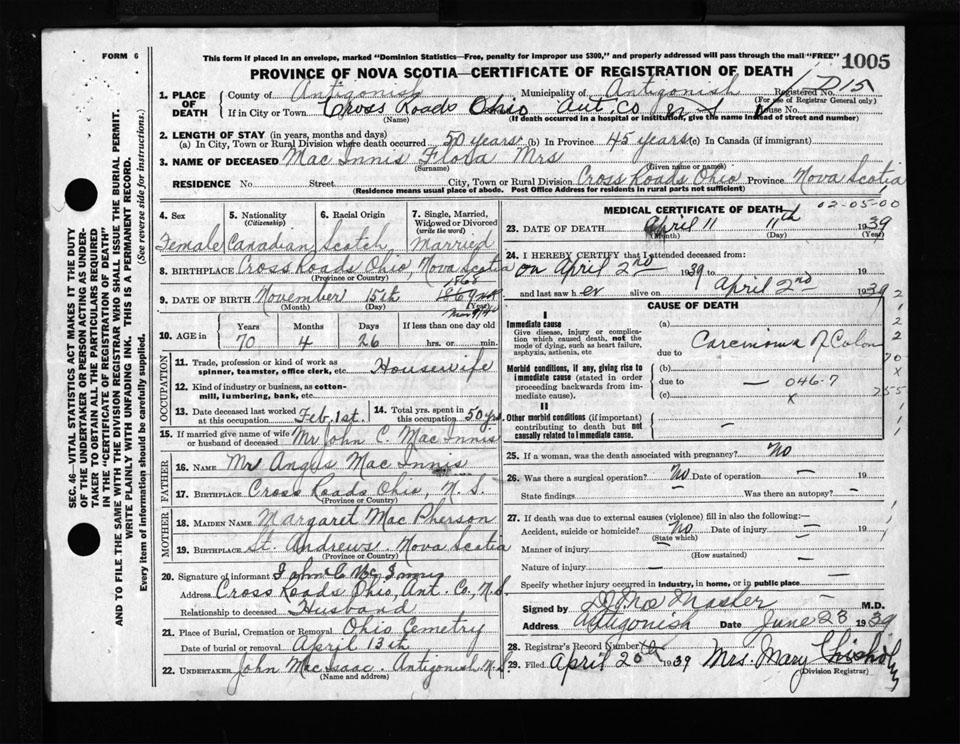 FORM 6
This form if placed in an envelope, marked "Dominion Statistics—Free, penalty for improper use $300," and properly addressed will pass through the mail "FREE"
1005
PROVINCE OF NOVA SCOTIA—CERTIFICATE OF REGISTRATION OF DEATH
1. PLACE OF DEATH
County of Antigonish Municipality of Antigonish Registered No. 1715
(For use of Registrar General only)
If in City or Town Cross Roads Ohio Ant. Co House No.
(Name) (If death occurred in a hospital or institution, give the name instead of street and number)
2. LENGTH OF STAY (in years, months and days)
(a) In City, Town or Rural Division where death occurred 50 years (b) In Province 45 years (c) In Canada (if immigrant)
3. NAME OF DECEASED Mac Innis Flora Mrs
(Surname) (Given name or names)
RESIDENCE No. Street City, Town or Rural Division Cross Roads Ohio Province Nova Scotia
(Residence means usual place of abode. Post Office Address for residents in rural parts not sufficient)
4. Sex Female
5. Nationality (Citizenship) Canadian
6. Racial Origin Scotch
7. Single, Married, Widowed or Divorced (write the word) Married
8. BIRTHPLACE Cross Roads Ohio, Nova Scotia
(Province or Country)
1868
9. DATE OF BIRTH November 15th
(Month) (Day) (Year)
10. AGE in Years Months Days If less than one day
70 4 26 hrs. or min.
OCCUPATION
11. Trade, profession or kind of work as spinner, teamster, office clerk, etc. Housewife
12. Kind of industry or business, as cotton-mill, lumbering, bank, etc.
13. Date deceased last worked at this occupation Feb. 1st.
14. Total yrs. spent in this occupation 50 yrs.
15. If married give name of wife or husband of deceased Mr John C. Mac Innis
FATHER
16. NAME Mr Angus Mac Innis
17. BIRTHPLACE Cross Roads Ohio, N. S.
(Province or Country)
MOTHER
18. MAIDEN NAME Margaret Mac Pherson
19. BIRTHPLACE St. Andrews. Nova Scotia
(Province or Country)
20. Signature of informant John C Mc Innis
Address Cross Roads Ohio, Ant. Co, N.S.
Relationship to deceased Husband
21. Place of Burial, Cremation or Removal Ohio Cemetry
Date of burial or removal April 13th
22. UNDERTAKER John Mac Isaac. Antigonish N.S.
(Name and address)
MEDICAL CERTIFICATE OF DEATH
02-05-00
23. DATE OF DEATH April 11 11th 1939
(Month) (Day) (Year)
24. I HEREBY CERTIFY that I attended deceased from:
on April 2nd 1939 to 19
and last saw her alive on April 2nd 1939
CAUSE OF DEATH
I
Immediate cause
Give disease, injury or complication which caused death, not the mode of dying, such as heart failure, asphyxia, asthenia, etc
(a)
due to Carcinoma of Colon
Morbid conditions, if any, giving rise to immediate cause (stated in order proceeding backwards from immediate cause).
(b)
due to — 046-7
(c) x
II
Other morbid conditions (if important) contributing to death but not causally related to immediate cause.
—
25. If a woman, was the death associated with pregnancy? No
26. Was there a surgical operation? No Date of operation — 19
State findings Was there an autopsy? —
27. If death was due to external causes (violence) fill in also the following:—
Accident, suicide or homicide? No Date of injury — 19
(State which)
Manner of injury —
(How sustained)
Nature of injury —
Specify whether injury occurred in industry, in home, or in public place
—
Signed by M.D.
Address Antigonish Date June 28 1939
28. Registrar's Record Number
29. Filed April 20 1939 Mrs. Mary Chisholm
(Division Registrar)
SEC. 46—VITAL STATISTICS ACT MAKES IT THE DUTY
OF THE UNDERTAKER OR PERSON ACTING AS UNDER-
TAKER TO OBTAIN ALL THE PARTICULARS REQUIRED
IN THE "CERTIFICATE OF REGISTRATION OF DEATH"
AND TO FILE THE SAME WITH THE DIVISION REGISTRAR WHO SHALL ISSUE THE BURIAL PERMIT.
WRITE PLAINLY WITH UNFADING INK. THIS IS A PERMANENT RECORD.
Every item of information should be carefully supplied. (See reverse side for instructions.)